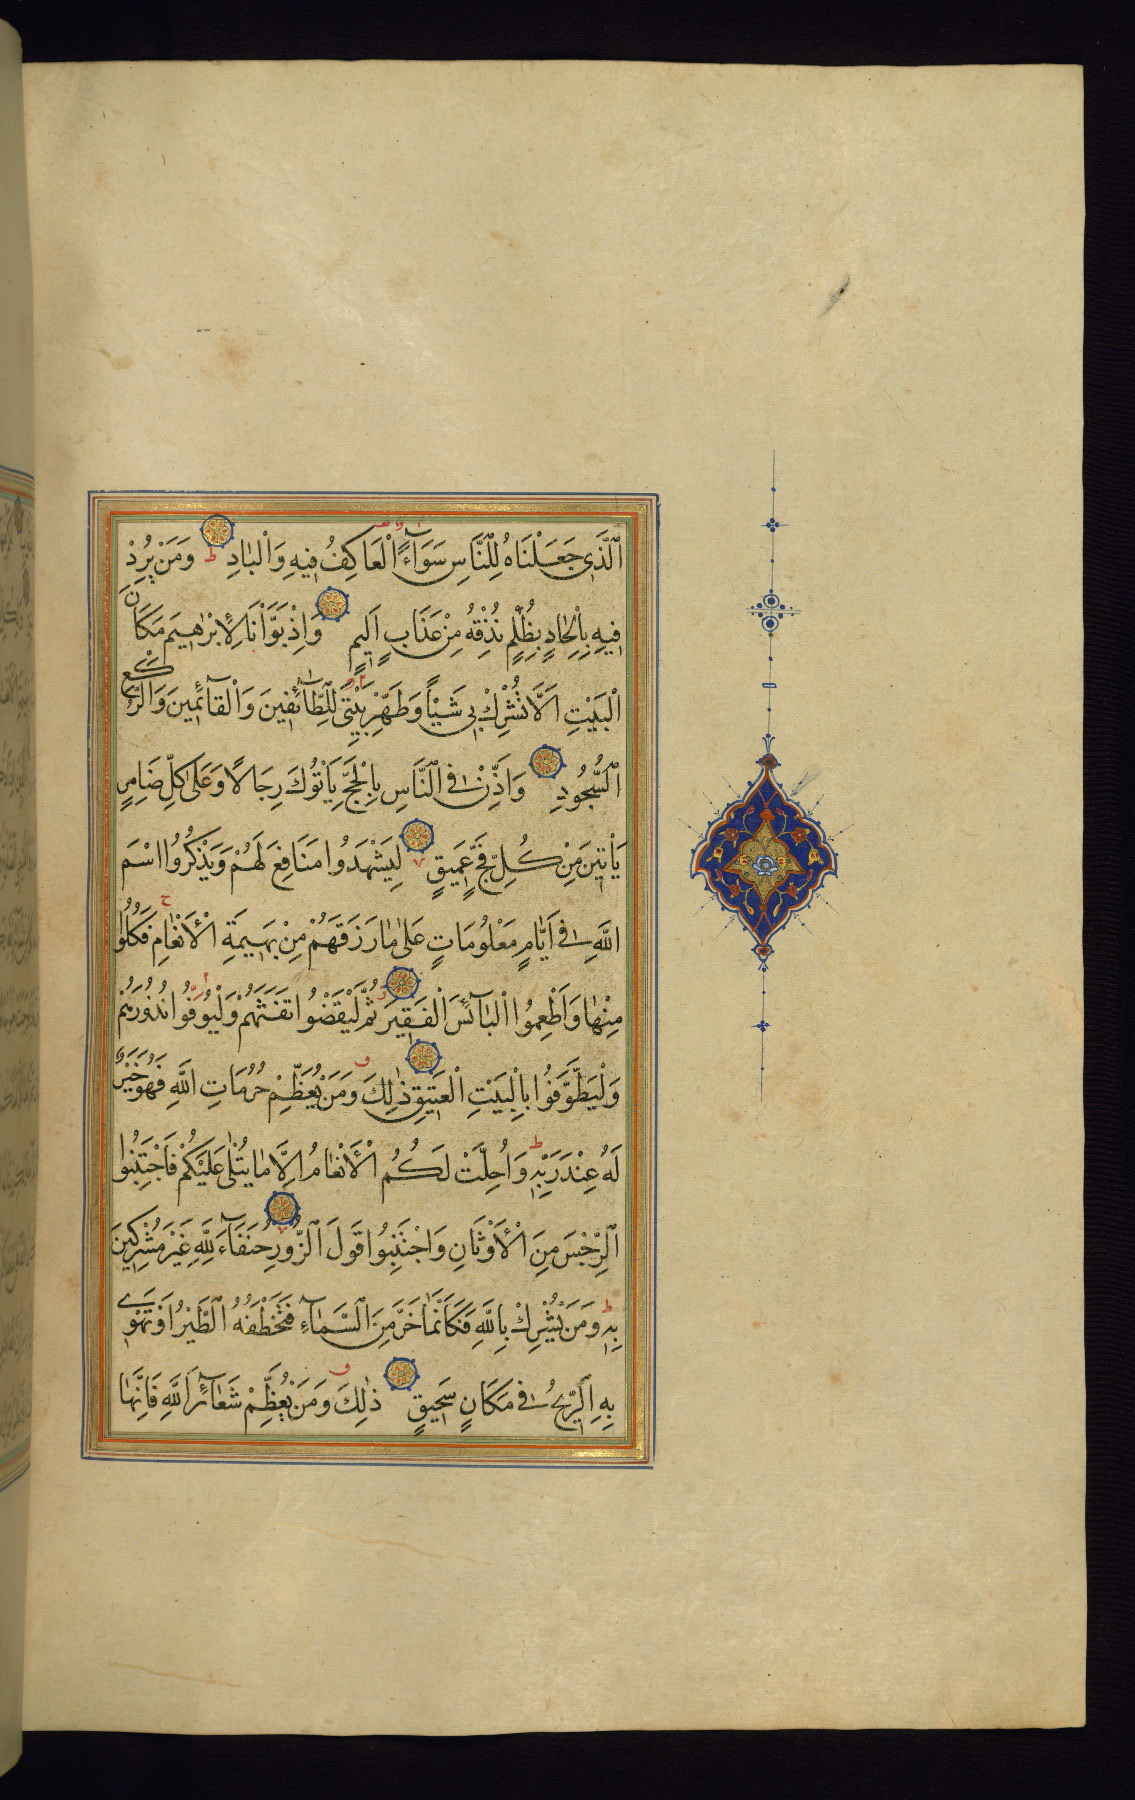 ٱلَّذِى جَعَلْنَاهُ لِلنَّاسِ سَوَآءً ٱلْعَاكِفُ فِيهِ وَٱلْبَادِ ط وَمَنْ يُرِدْ
فِيهِ بِإِلْحَادٍ بِظُلْمٍ نُذِقْهُ مِنْ عَذَابٍ اَلِيمٍ وَاِذْ بَوَّاْنَا لِاِبْرٰهِيمَ مَكَانَ
الْبَيْتِ اَلَّا تُشْرِكْ بِى شَيْاً وَطَهِّرْ بَيْتِىَ لِلطَّآئِفِينَ وَالْقَآئِمِينَ وَالرُّكَّعِ
السُّجُودِ وَاَذِّنْ فِى النَّاسِ بِالْحَجِّ يَاْتُوكَ رِجَالًا وَعَلٰى كُلِّ ضَامِرٍ
يَاْتِينَ مِنْ كُلِّ فَجٍّ عَمِيقٍ لِيَشْهَدُوا مَنَافِعَ لَهُمْ وَيَذْكُرُوا اسْمَ
اللَّهِ فِى اَيَّامٍ مَعْلُومَاتٍ عَلٰى مَا رَزَقَهُمْ مِنْ بَهِيمَةِ الْأَنْعَامِ ج فَكُلُوا
مِنْهَا وَاَطْعِمُوا الْبَآئِسَ الْفَقِيرَ ثُمَّ لْيَقْضُوا تَفَثَهُمْ وَلْيُوفُوا نُذُورَهُمْ
وَلْيَطَّوَّفُوا بِالْبَيْتِ الْعَتِيقِ ذٰلِكَ وَمَنْ يُعَظِّمْ حُرُمَاتِ اللَّهِ فَهُوَ خَيْرٌ
لَهُ عِنْدَ رَبِّهِ ط وَاُحِلَّتْ لَكُمُ الْأَنْعَامُ اِلَّا مَا يُتْلٰى عَلَيْكُمْ فَاجْتَنِبُوا
الرِّجْسَ مِنَ الْأَوْثَانِ وَاجْتَنِبُوا قَوْلَ الزُّورِ حُنَفَآءَ لِلَّهِ غَيْرَ مُشْرِكِينَ
بِهِ ط وَمَنْ يُشْرِكْ بِاللَّهِ فَكَاَنَّمَا خَرَّ مِنَ السَّمَآءِ فَتَخْطَفُهُ الطَّيْرُ اَوْ تَهْوِى
بِهِ الرِّيحُ فِى مَكَانٍ سَحِيقٍ ذٰلِكَ وَمَنْ يُعَظِّمْ شَعَآئِرَ اللَّهِ فَاِنَّهَا